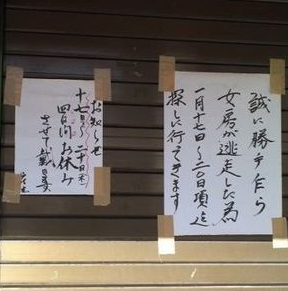 誠に勝手乍ら
女房が逃走した為
一月十七日〜二〇日頃迄
探しに行てきます
お知らせ
十七日〜二十日(木)
四日間お休み
させて戴きます